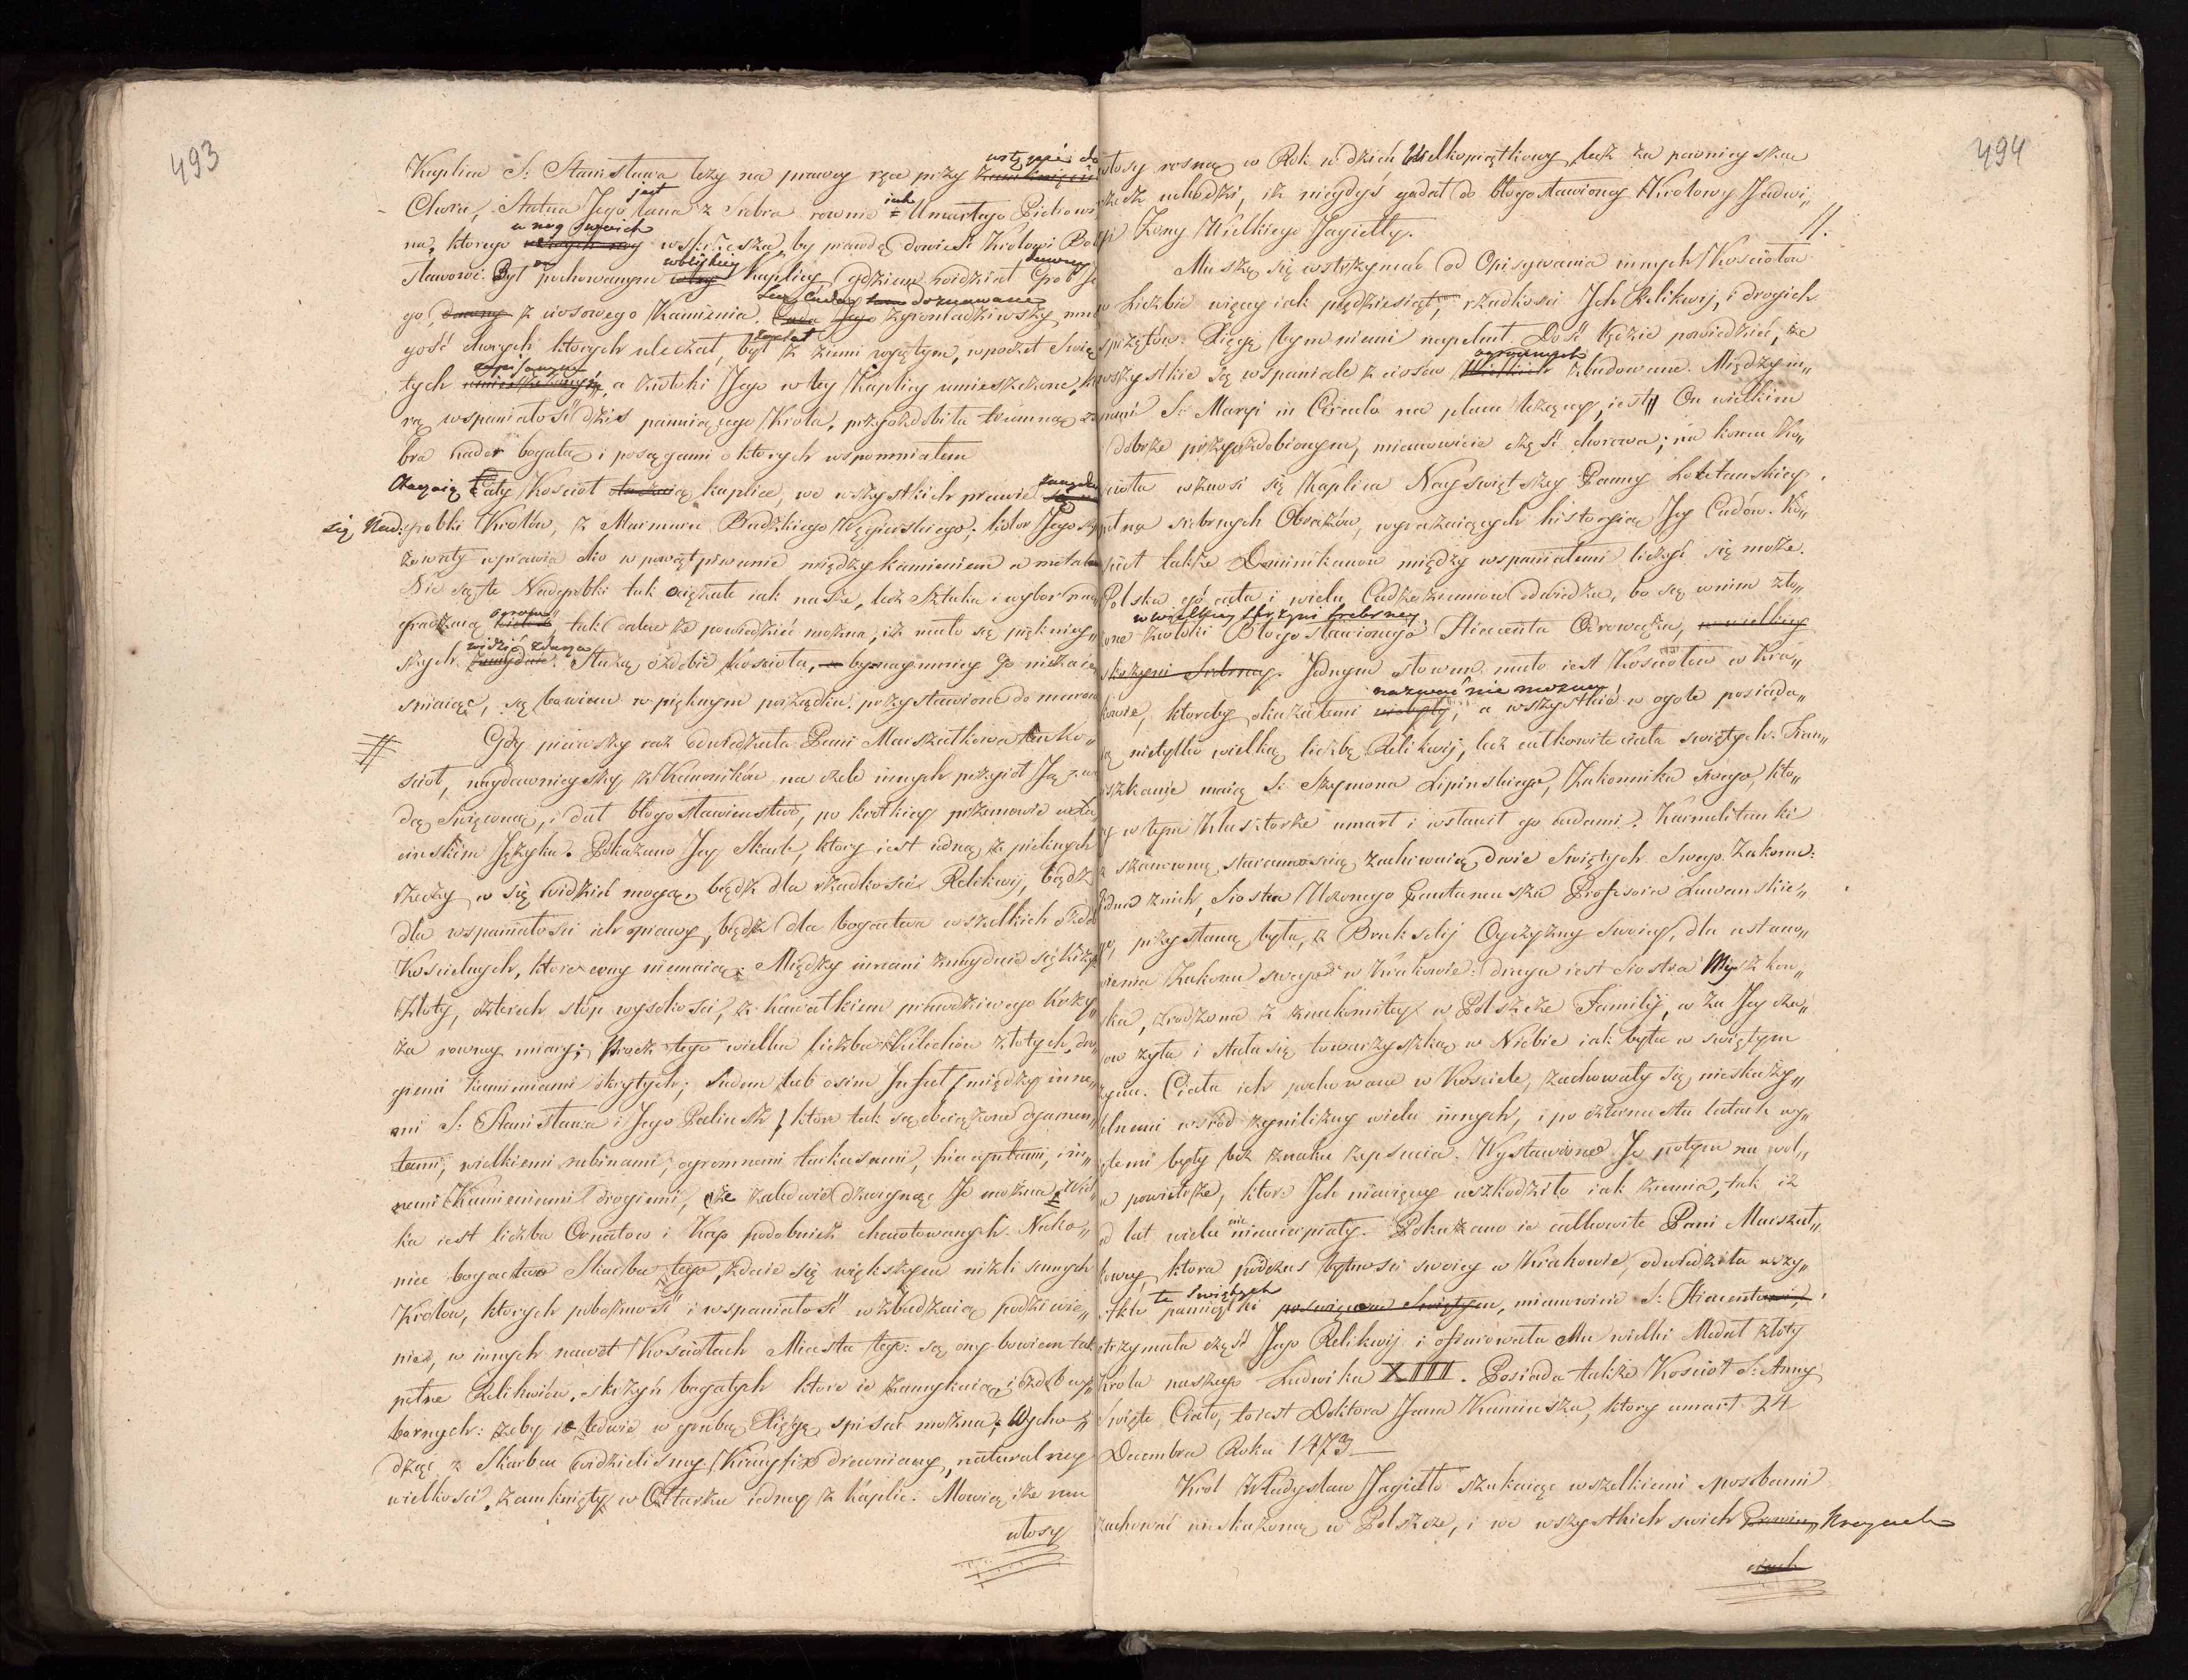 493
Kaplica S: Stanisława leży na prawey ręce przy wstępie do
Choru, Statua Jego jest lana z Srebra rownie iak Umarłego Piotrowi
na, ktorego u nog swoich wskrzesza, by prawdę dowieść Krolowi Bole
sławowi. Był on pochowanym wbliskiey Kaplicy, gdziem widział Grob Je
go, dawny z ciosowego Kamienia. Lecz Cuda doznawane zgromadziwszy mno
gość chorych ktorych uleczał, był z ziemi wyjętym, wpoczet Świę
tych wpisanym, a zwłoki Jego w tey Kaplicy umieszczone, kto
rą wspaniałość dziś panuiącego Krola, przyozdobiła trumną ze sre
bra nader bogatą i posągami o ktorych wspomniałem
Otaczaią Cały Kościoł kaplice, we wszystkich prawie znayduią
się Nad: grobki Krolów, z Marmuru Budzkiego Węgierskiego; kolor Jego
żowaty wprawia oko w powątpiwanie między kamieniem a metalem
Nie są te Nadgrobki tak wiązałe iak nasze, lecz Sztuka i wybor nad
gradzaią tak dalece że powiedzieć można, iż mało się piękniey„
szych widzieć zdarza. Służą ozdobie Kościoła, bynaymniey go nieza
śniaiąc, są bowiem w pięknym porządku, przystawione do murow
Gdy pierwszy raz odwiedzała Pani Marszałkowa ten Ko„
ścioł, naydawnieyszy z Kanoników na czele innych przyioł Ją z wo
dą Święconą, i dał błogosławieństwo, po krotkiey przemowie w Ła
cinskim Języku. Pokazano Jey Skarb, ktory iest iedną z pieknych
rzeczy co się widzieć mogą, bądź dla rzadkości Relikwij, bądź
dla wspaniałosci ich oprawy, bądź dla bogactwa wszelkich Ozdob
Koscielnych, które ceny niemaią. Między innemi znayduie się Krzyż
Złoty, czterech stóp wysokości, z kawałkiem prawdziwego Krzy„
ża rowney miary; Procz tego wielka liczba Kielichów złotych, dro„
giemi kamieniami okrytych; Siedem lub osim Infuł / między inne„
mi S: Stanisława i Jego Paliusz / które tak są obciążone dyamen„
tami, wielkiemi rubinami, ogromnemi turkusami, hiacyntami, i in„
nemi Kamieniami drogiemi, że zaledwie dzwignąć Je można. Wiel„
ka iest liczba Ornatow i Kap podobnież haftowanych. Nako„
niec bogactwo Skarbu tego, zdaie się większym nizli samych
Krolow, ktorych pobożność i wspaniałość wzbudzaią podziwie„
nie, w innych nawet Kościołach Miasta tego: są one bowiem tak
pełne Relikwiów, skrzyń bogatych które ie zamykaią, i ozdob wy„
bornych: żeby ie ledwie w grubą Xięgę spisać można; Wycho„
dząc z Skarbu widzieliśmy Krucyfix drewniany, naturalney
wielkości, zamknięty w Ołtarzu iedney z Kaplic. Mowią iż mu
włosy
494
włosy rosną w Rok w dzień Wielkopiątkowy, lecz za pewnieyszą
rzecz uchodzi, iż niegdyś gadał do błogosławioney Krolowy Jadwi„
gi Żony Wielkiego Jagiełły.
Muszę się wstrzymać od Opisywania innych Kościołow
w Liczbie więcey iak pięćdziesiąt, rzadkości Ich Relikwij, i drogich
sprzętów. Xięgę bym niemi napełnił. Dość będzie powiedzieć, że
wszystkie są wspaniale z ciosów ogromnych zbudowane. Między in„
nemi S: Maryi in Circulo na placu leżący, iest On wielkim
i dobrze przyozdobionym, mianowicie część chorowa; na końcu Ko„
scioła wznosi się Kaplica Nayświętszey Panny Loretanskiey
pełna srebrnych Obrazów, wyrażaiących historyią Jey Cudów. Ko„
scioł także Dominikanow między wspaniałemi liczyć się może.
Polska go cała i wielu Cudzoziemców odwiedza, bo są w nim zło„
żone zwłoki Błogosławionego Hiacenta Odrowąża, w wielkiey skrzyni srebrney
skrzyni Srebrney. Jednym słowem mało iest Kosciołow w Kra„
kowie, ktoreby okazałemi nazwać nie można, a wszystkie w ogole posiada„
ią nietylko wielką liczbę Relikwij, lecz całkowite ciała świętych. Fran„
ciszkanie maią S: Szymona Lipinskiego, Zakonnika swego, kto„
ry w tym Klasztorze umarł i wsławił go cudami. Karmelitanki
z szanowną starannoscią zachowuią dwie Świętych Swego Zakonu:
Jedna z nich, Siostra Uczonego Puteanusza Professora Luwanskie„
go, przysłaną była, z Brukselij Oyczyzny Swoiey, dla ustano„
wienia Zakonu swego w Krakowie: druga iest Siostra Myszkow„
ska, zrodzona z znakomitey w Polszcze Familij, w za Jey cza„
sow żyła i stała się towarzyszką w Niebie iak była w świętym
życiu. Ciała ich pochowane w Kosciele, zachowały się nieskazy„
telnemi wsród zgnilizny wielu innych, i po kilkunastu latach wy„
jętemi były bez znaku zepsucia. Wystawiono Je potym na wol„
ne powietrze, ktore Ich niewięcey uszkodziło iak ziemia, tak iż
od lat wielu nic nieucierpiały. Pokazano ie całkowite Pani Marszał„
kowey, ktora podczas bytności swoiey w Krakowie, odwiedziła wszy„
stkie te Świętych pamiątki poswięcone Świętym, mianowicie S: Hiacenta,
otrzymała część Jego Relikwij i ofiarowała Mu wielki Medal złoty
Krola naszego Ludwika XIII. Posiada także Kościoł S: Anny
Święte Ciało, to iest Doktora Jana Kanciusza, ktory umarł 24
Decembra Roku 1473
Krol Władysław Jagiełło szukaiąc wszelkiemi sposobami
zachować nieskażoną w Polszcze, i we wszystkich swich Kraiach